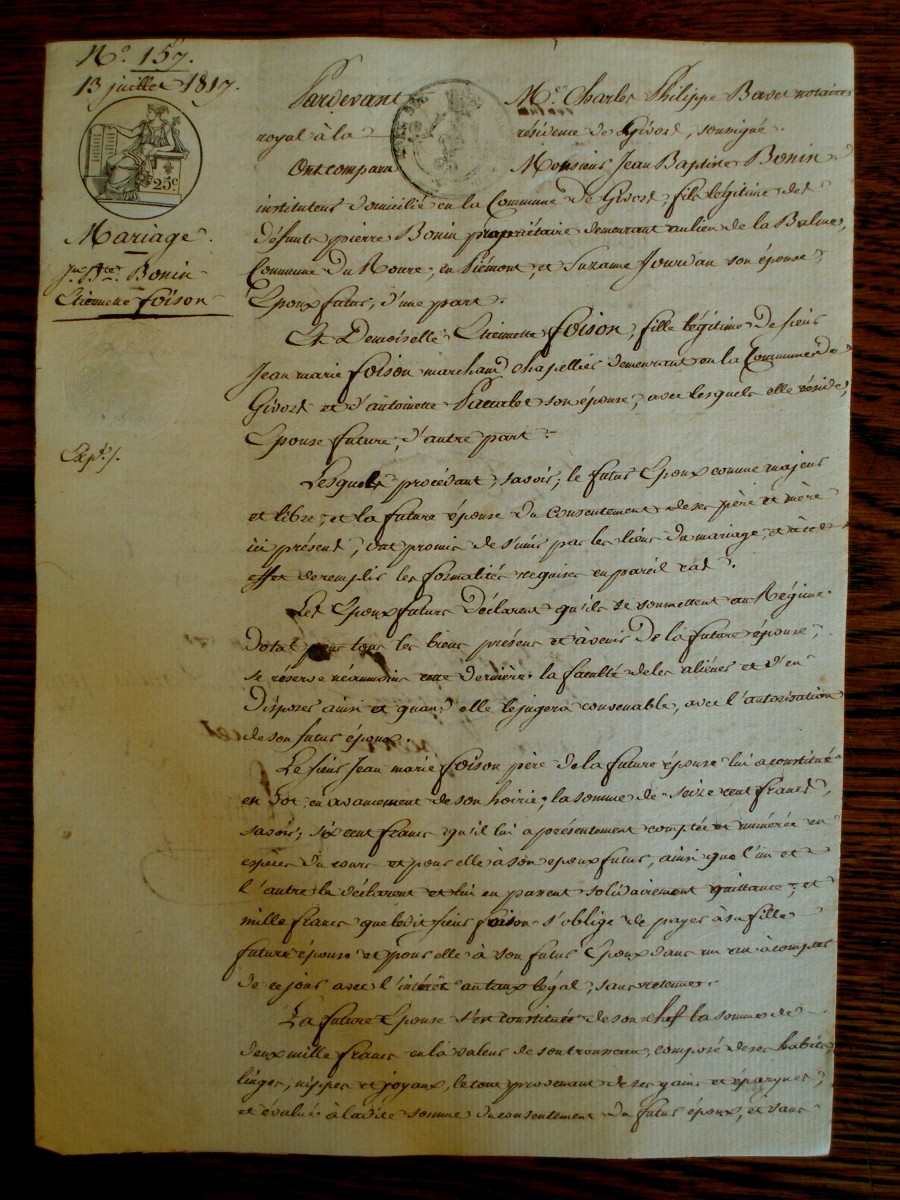 N.o 157.
13 juillet 1817.
25c
Mariage.
Jn. Bte. Bonin
Etiennette Foison
Expé./.
Pardevant Me. Charles Philippe Bavet notaire
royal à la résidence de Givord, soussigné.
Ont comparu Monsieur Jean Baptiste Bonin
instituteur domicilié en la Commune de Givord fils légitime des
défunts pierre Bonin propriétaire demeurant au lieu de la Balme,
Commune du Roure, en Piémont, et Suzanne Jourdan son épouse
Epoux futur, d'une part.
Et Demoiselle Etiennette Foison, fille légitime de sieur
Jean marie Foison marchand chapellier demeurant en la Commune de
Givord et d'antoinette son épouse, avec lesquels elle réside,
Epouse future, d'autre part.
Lesquels procédant, savoir; le futur Epoux comme majeur
et libre, et la future épouse du Consentement de ses père et mère
ici présent, ont promis de s'unir par les liens du mariage, et à cet
effet de remplir les formalités requises en pareil cas.
Les Epoux futurs Déclarent qu'ils se soumettent au Régime
Dotal pour tous les biens présens et à venir De la future épouse,
se réserve néanmoins cette dernière la faculté de les aliéner et d'en
Disposer ainsi et quand elle le jugera convenable, avec l'autorisation
de son futur époux.
Le sieur Jean marie Foison père de la future épouse lui a constitué
en Dot en avancement de son hoirie, la somme de seize cent francs,
savoir; six cent francs qu'il lui a présentement comptée et numérée en
espèces du cours et pour elle à son epoux futur, ainsi que l'un et
l'autre le déclarent et lui en passent solidairement quittance, et
mille francs que ledit sieur Foison s'oblige de payer à sa fille
future épouse et pour elle à son futur Epoux dans un an à compter
de ce jour avec l'intérêt au taux légal, sans retenue.
La future Epouse s'est constituée de son chef la somme de
deux mille francs en la valeur de son trousseau, composé de ses habits,
linges, nippes et joyaux, le tout provenant de ses gains et épargnes,
et évalué à ladite somme du consentement du futur époux, et sans